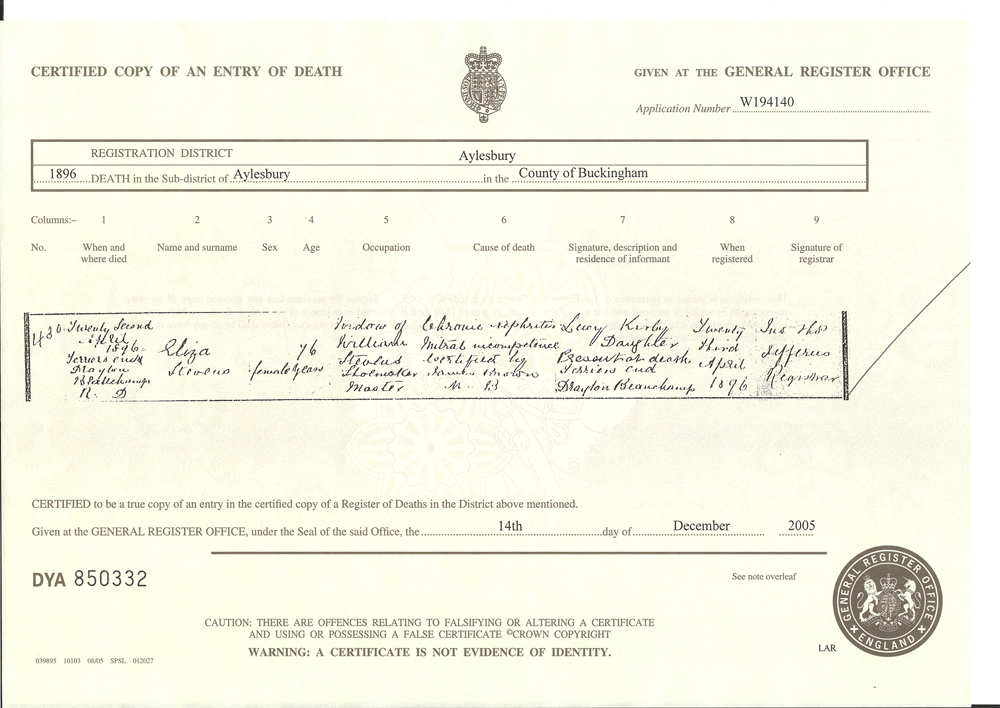 CERTIFIED COPY OF AN ENTRY OF DEATH
GIVEN AT THE GENERAL REGISTER OFFICE
Application Number W194140
REGISTRATION DISTRICT Aylesbury
1896 DEATH in the Sub-district of Aylesbury in the County of Buckingham
Columns:– 1 2 3 4 5 6 7 8 9
No. When and where died Name and surname Sex Age Occupation Cause of death Signature, description and residence of informant When registered Signature of registrar
430
Twenty Second
April
1896
End
Drayton
Beauchamp
R. D
Eliza
Stevens
female
76
years
Widow of
William
Stevens
Shoemaker
Master
Chronic Nephritis
Mitral incompetence
Certified by
James Brown
M. B
Lucy Kirby
Daughter
Present at death
Terriers end
Drayton Beauchamp
Twenty
third
April
1896
Jefferus
Registrar
CERTIFIED to be a true copy of an entry in the certified copy of a Register of Deaths in the District above mentioned.
Given at the GENERAL REGISTER OFFICE, under the Seal of the said Office, the 14th day of December 2005
DYA 850332
See note overleaf
CAUTION: THERE ARE OFFENCES RELATING TO FALSIFYING OR ALTERING A CERTIFICATE
AND USING OR POSSESSING A FALSE CERTIFICATE ©CROWN COPYRIGHT
WARNING: A CERTIFICATE IS NOT EVIDENCE OF IDENTITY.
GENERAL REGISTER OFFICE
ENGLAND
LAR
039895 10103 08/05 SPSL 012027